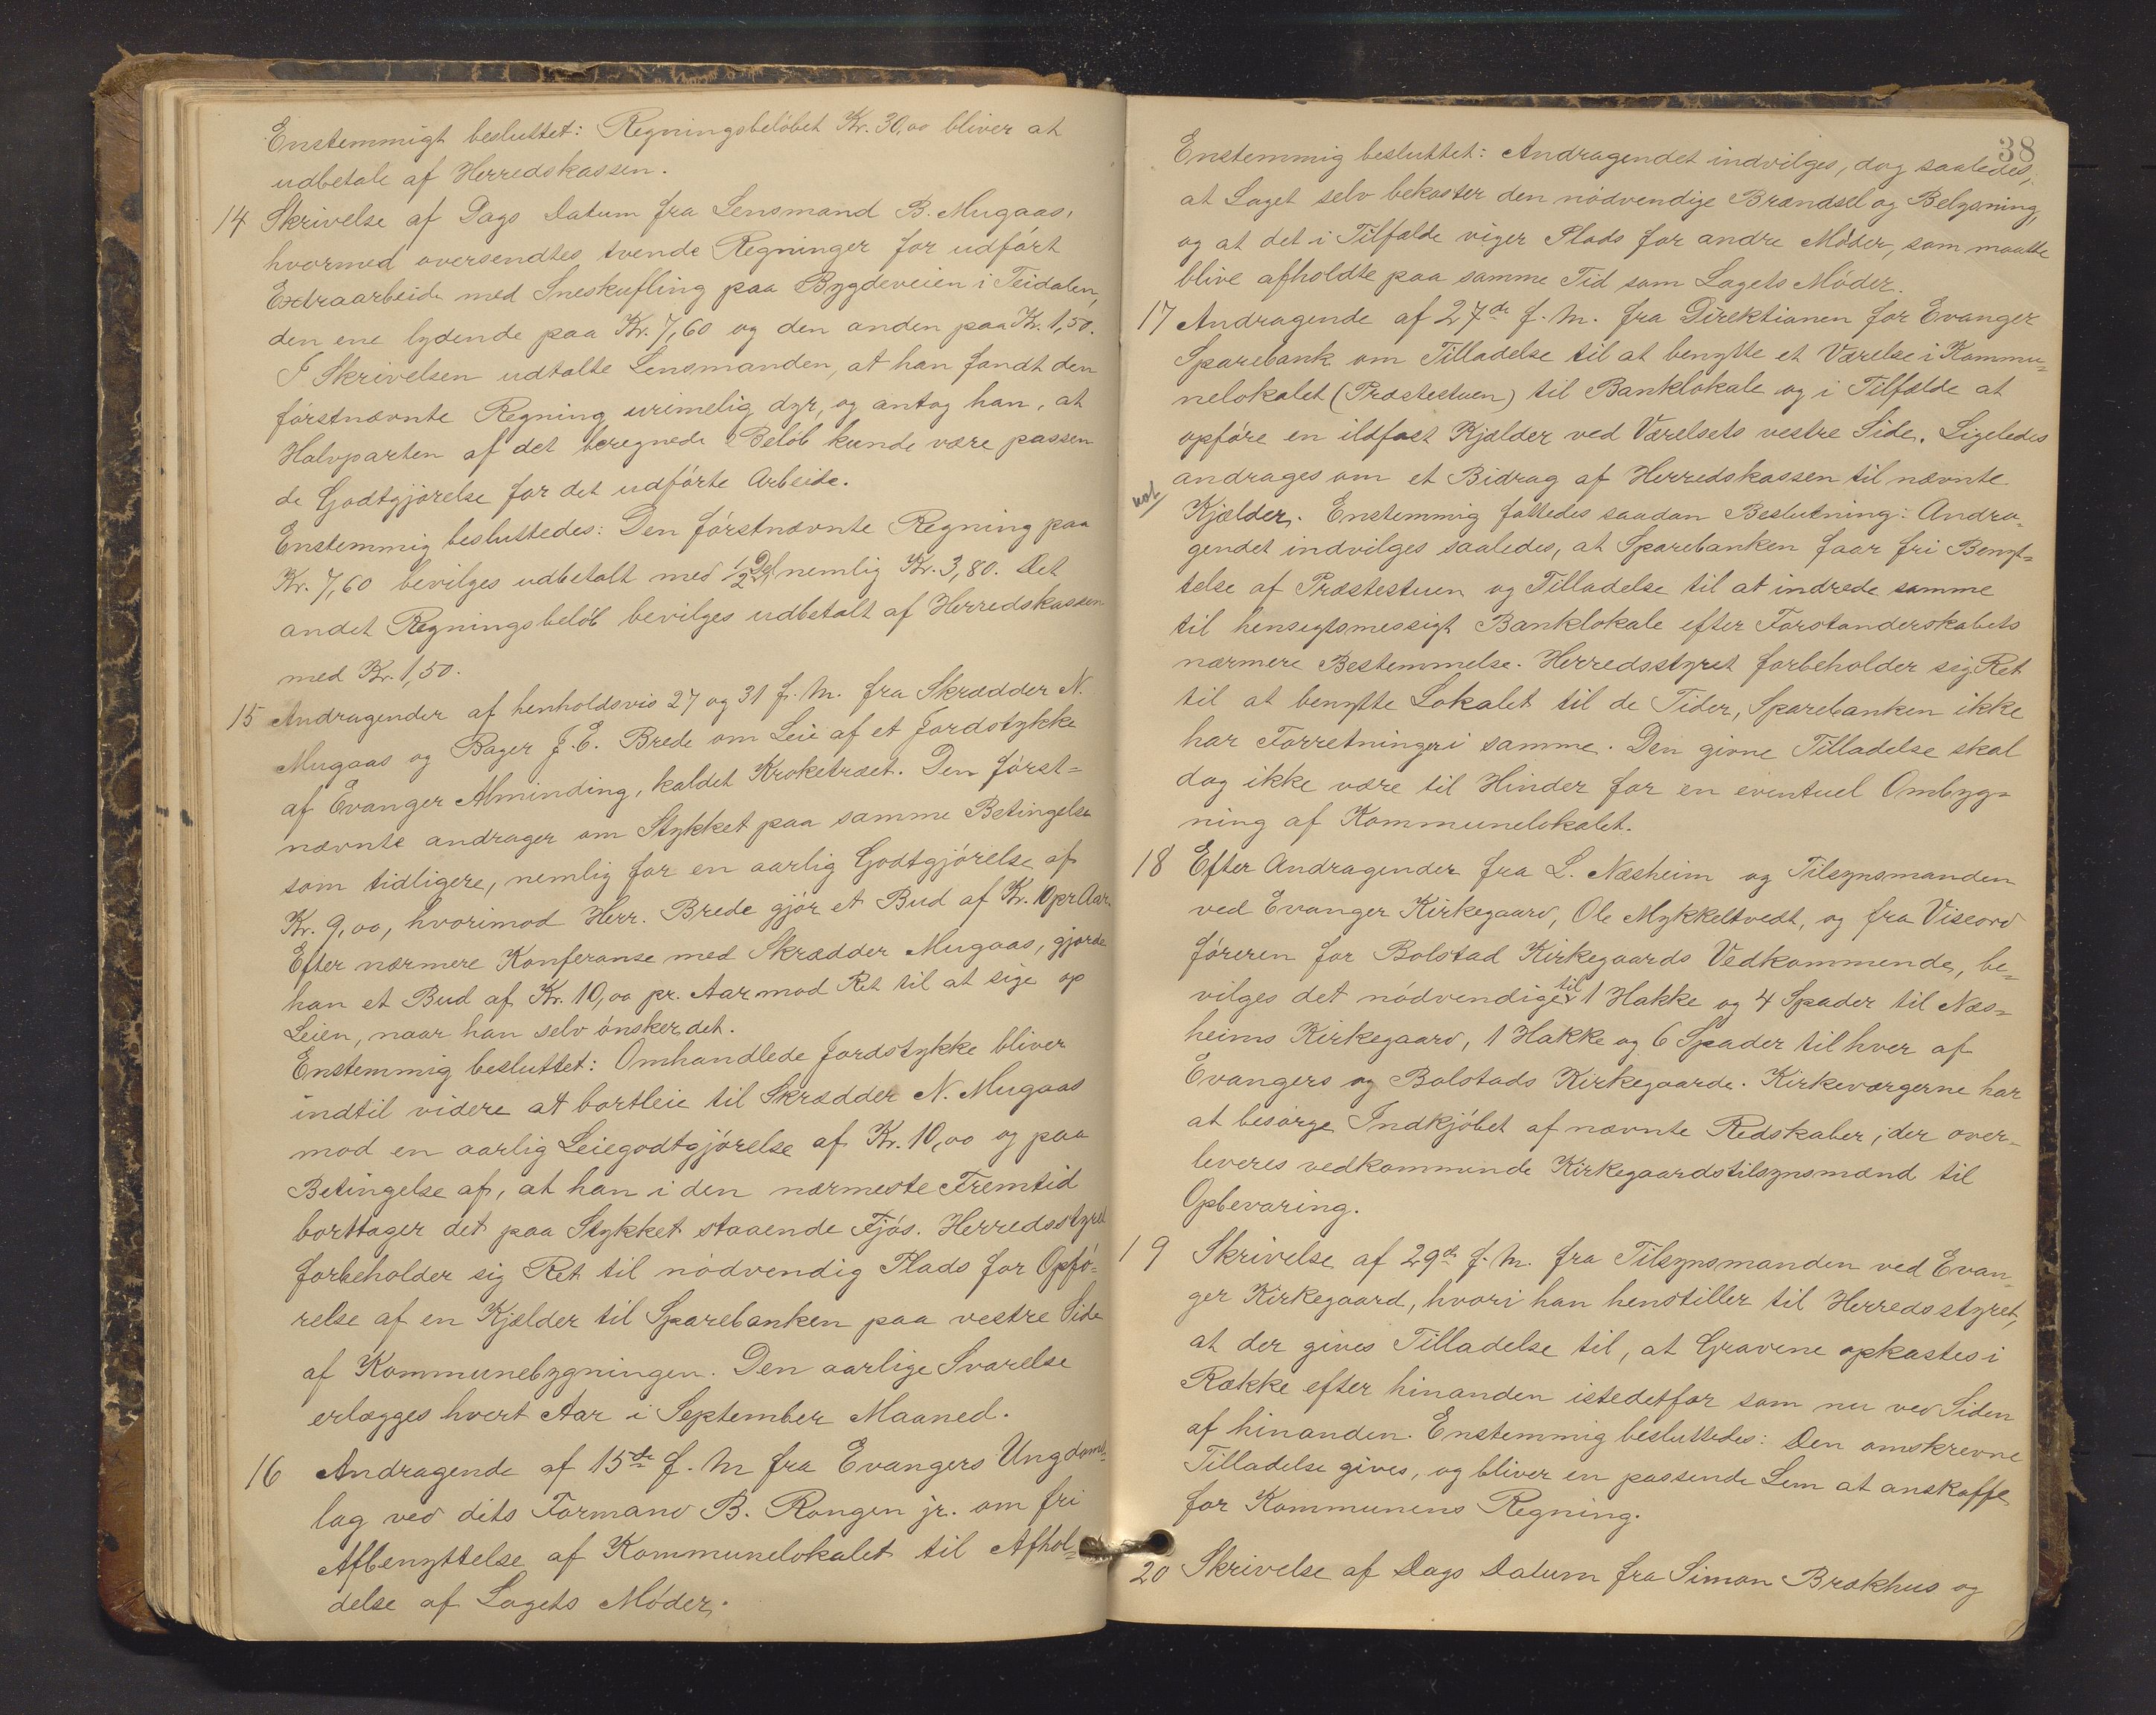 Enstemmigt besluttet: Regningsbeløbet Kr. 30,00 bliver at
udbetale af Herredskassen.
14 Skrivelse af Dags Datum fra Lensmand B. Mugaas,
hvormed oversendtes tvende Regninger for udført
Extraarbeide med Sneskufling paa Bygdeveien i Teidalen,
den ene lydende paa Kr. 7,60 og den anden paa Kr. 1,50.
I Skrivelsen udtalte Lensmanden, at han fandt den
førstnævnte Regning urimelig dyr, og antog han, at
Halvparten af det beregnede Beløb kunde være passen
de Godtgjørelse for det udførte Arbeide.
Enstemmig besluttedes: Den førstnævnte Regning paa
Kr. 7,60 bevilges udbetalt med 1/2 Del, nemlig Kr. 3,80. Det
andet Regningsbeløb bevilges udbetalt af Herredskassen
med Kr. 1,50.
15 Andragender af henholdsvis 27 og 31 f. M. fra Skrædder N.
Mugaas og Bager J. E. Brede om Leie af et Jordstykke
af Evanger Alminding, kaldet Kroketræet. Den først=
nævnte andrager om Stykket paa samme Betingelse
som tidligere, nemlig for en aarlig Godtgjørelse af
Kr. 9,00, hvorimod Herr. Brede gjør et Bud af Kr. 10 pr Aar.
Efter nærmere Konferanse med Skrædder Mugaas, gjorde
han et Bud af Kr. 10,00 pr. Aar mod Ret til at sige op
Leien, naar han selv ønsker det.
Enstemmig besluttet: Omhandlede Jordstykke bliver
indtil videre at bortleie til Skrædder N. Mugaas
mod en aarlig Leiegodtgjørelse af Kr. 10,00 og paa
Betingelse af, at han i den nærmeste Fremtid
borttager det paa Stykket staaende Fjøs. Herredsstyret
forbeholder sig Ret til nødvendig Plads for Opfø=
relse af en Kjælder til Sparebanken paa vestre Side
af Kommunebygningen. Den aarlige Svarelse
erlægges hvert Aar i September Maaned.
16 Andragende af 15de f. M fra Evangers Ungdoms=
lag ved dets Formand B. Rongen jr. om fri
Afbenyttelse af Kommunelokalet til Afhol=
delse af Lagets Møder.
38
Enstemmig besluttet: Andragendet indvilges, dog saaledes,
at Laget selv bekoster den nødvendige Brændsel og Belysning,
og at det i Tilfælde viger Plads for andre Møder, som maatte
blive afholdte paa samme Tid som Lagets Møder.
17 Andragende af 27de f. M. fra Direktionen for Evanger
Sparebank om Tilladelse til at benytte et Værelse i Kommu=
nelokalet (Præstestuen) til Banklokale og i Tilfælde at
opføre en ildfast Kjælder ved Værelsets vestre Side. Ligeledes
andrages om et Bidrag af Herredskassen til nævnte
Kjælder. Enstemmig fattedes saadan Beslutning: Andra=
gendet indvilges saaledes, at Sparebanken faar fri Benyt=
telse af Præstestuen og Tilladelse til at indrede samme
til hensegtsmessigt Banklokale efter Forstanderskabets
nærmere Bestemmelse. Herredsstyret forbeholder sig Ret
til at benytte Lokalet til de Tider, Sparebanken ikke
har Forretninger i samme. Den givne Tilladelse skal
dog ikke være til Hinder for en eventuel Ombyg=
ning af Kommunelokalet.
18 Efter Andragender fra L. Næsheim og Tilsynsmanden
ved Evanger Kirkegaard, Ole Mykkeltvedt, og fra Viseord
føreren for Bolstad Kirkegaards Vedkommende, be=
vilges det nødvendige til 1 Hakke og 4 Spader til Næs=
heims Kirkegaard, 1 Hakke og 6 Spader til hver af
Evangers og Bolstads Kirkegaarde. Kirkeværgerne har
at besørge Indkjøbet af nævnte Redskaber, der over=
leveres vedkommende Kirkegaardstilsynsmænd til
Opbevaring.
19 Skrivelse af 29de f. M. fra Tilsynsmanden ved Evan=
ger Kirkegaard, hvori han henstiller til Herredsstyret,
at der gives Tilladelse til, at Gravene opkastes i
Række efter hinanden istedetfor som nu ved Siden
af hinanden. Enstemmig besluttedes: Den omskrevne
Tilladelse gives, og bliver en passende Lem at anskaffe
for Kommunens Regning.
20 Skrivelse af Dags Datum fra Simon Brækhus og